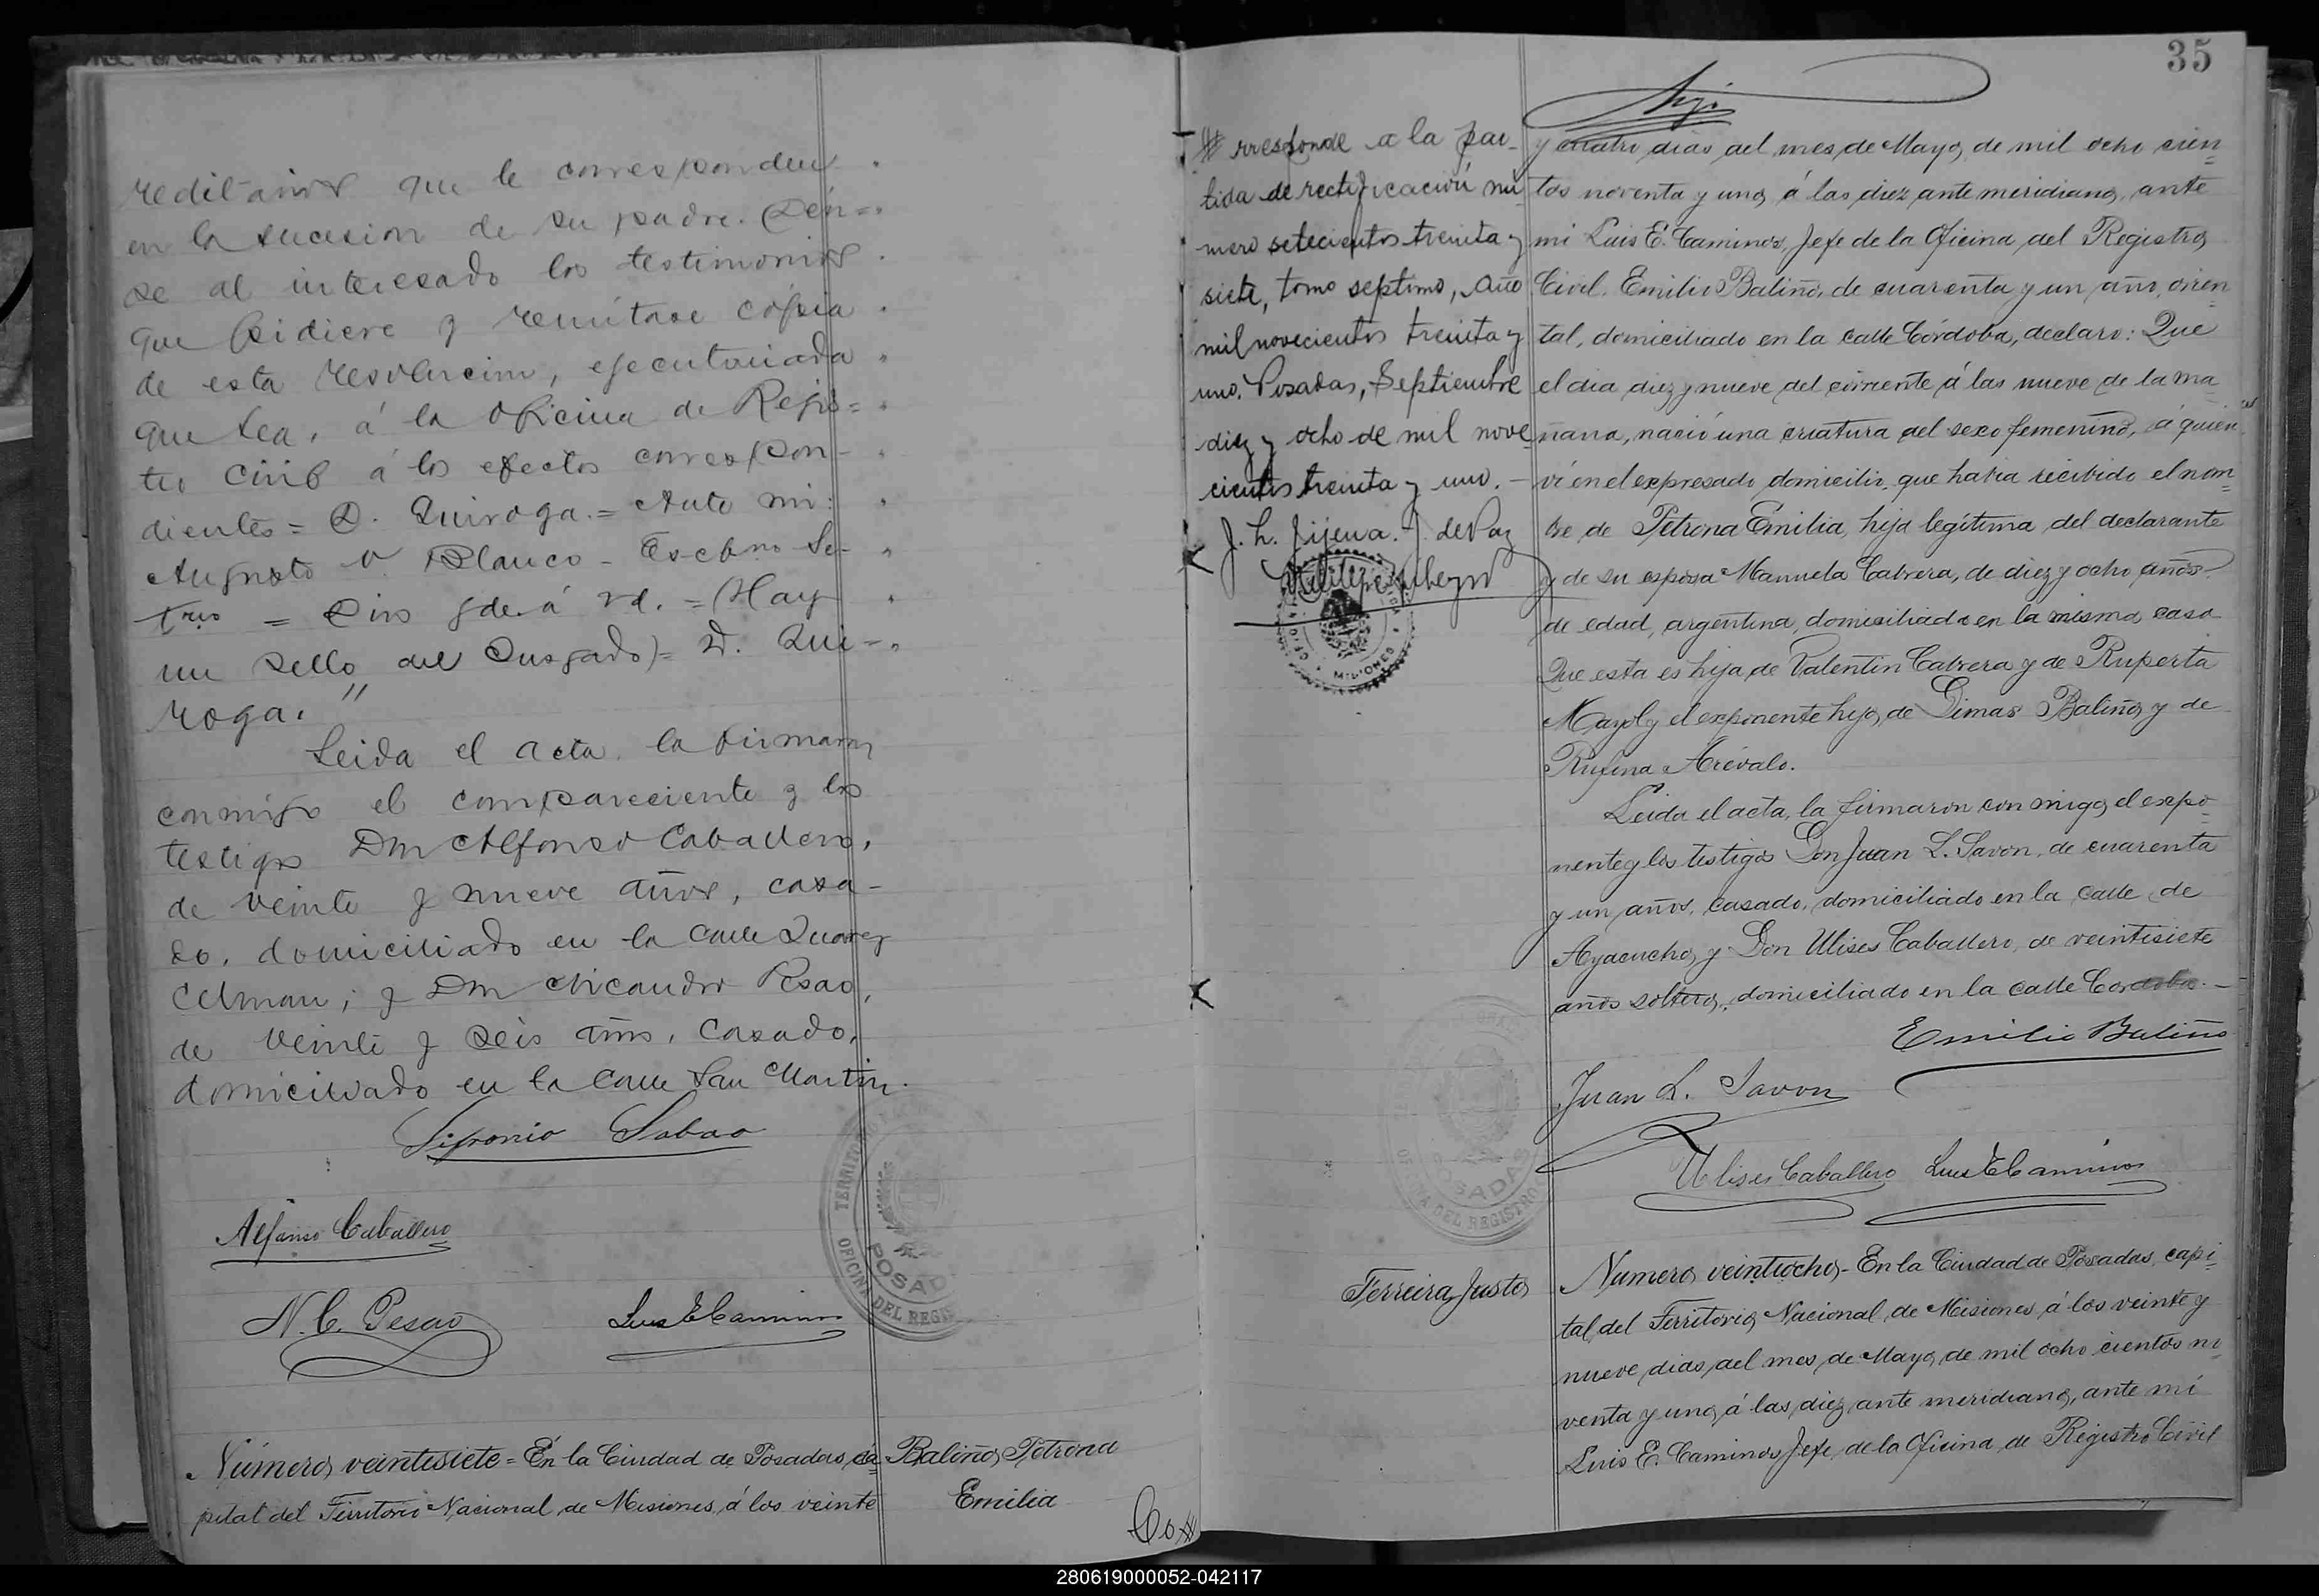 reditarios que le corresponden
en la sucesion de su padre. Den=
se al interesado los testimonios
que pidiere y remitase cópia
de esta resolucion, ejecutoriada
que sea, á la oficina de Regis=
tro Civil á los efectos correspon-
dientes = D. Quiroga. = Ante mi:
Augusto V. Blanco - Escbno Se-
trio = Dios gde. á Vd. = (Hay
un sello del Jusgado) = D. Qui-
roga. "
Leida el acta la firmaron
conmigo el compareciente y los
testigos Don Alfonso Caballero,
de veinte y nueve años, casa-
do, domiciliado en la calle Juarez
Celman; y Don Nicandro Pesao,
de veinte y seis años, casado,
domiciliado en la calle San Martin.
Sabao
Alfonso Caballero
N. C. Pesao
Luis E Caminos
Número veintisiete = En la Ciudad de Posadas, ca=
pital del Territorio Nacional de Misiones, á los veinte
Balino, Petrona
Emilia
Co#
TERRITORIO
OFICINA DEL REGIS
POSAD
35
# rresponde a la par-
tida de rectificación nú
mero setecientos treinta y
siete, tomo septimo, año
mil novecientos treinta y
uno. Posadas, Septiembre
diez y ocho de mil nove
cientos treinta y uno. -
J. L. Jijena. J. de Paz
MISIONES
y cuatro dias del mes de Mayo de mil ocho cien=
tos noventa y uno, á las diez ante meridiano, ante
mi Luis E. Caminos, Jefe de la Oficina del Registro
Civil. Emilio Baliño, de cuarenta y un año, orien
tal, domiciliado en la calle Córdoba, declaro: Que
el dia diez y nueve del corriente á las nueve de la ma
ñana, nació una criatura del sexo femenino, á quien
ví en el expresado domicilio, que habia recibido el nom=
bre de Petrona Emilia, hija legítima del declarante
y de su esposa Manuela Cabrera, de diez y ocho años
de edad, argentina, domiciliada en la misma casa
Que esta es hija de Valentin Cabrera y de Ruperta
Mayol y el exponente hijo de Dimas Baliño y de
Rufina Arévalo.
Leida el acta, la firmaron con migo el expo=
nente y los testigos Don Juan L. Savon, de cuarenta
y un años, casado, domiciliado en la calle de
Ayacucho, y Don Ulises Caballero, de veintisiete
años soltero, domiciliado en la calle Cordoba. -
Emilio Baliño
Juan L. Savon
Ulises Caballero Luis E Caminos
OFICINA DEL REGISTRO
POSADAS
Ferreira Justo
Numero veintiocho, - En la Ciudad de Posadas, capi=
tal del Territorio Nacional de Misiones, á los veinte y
nueve dias del mes de Mayo de mil ocho cientos no=
venta y uno, á las diez ante meridiano, ante mí
Luis E. Caminos, Jefe de la Oficina de Registro Civil
280619000052-042117